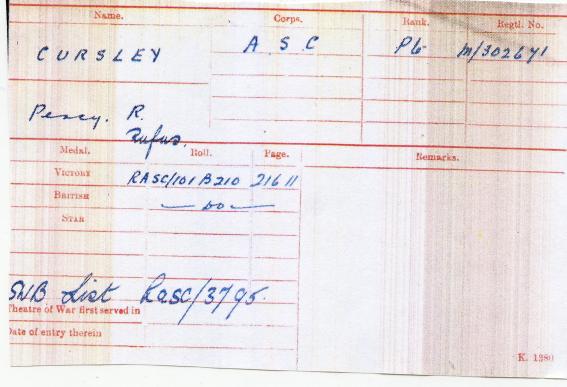 Name. Corps. Rank. Regtl. No.
CURSLEY A S C Pte M/302671
Percy. R.
Rufus.
Medal. Roll. Page. Remarks.
VICTORY RASC/101 B210 21611
BRITISH — DO —
STAR
SWB List Rasc/3795.
Theatre of War first served in
Date of entry therein
K. 1380